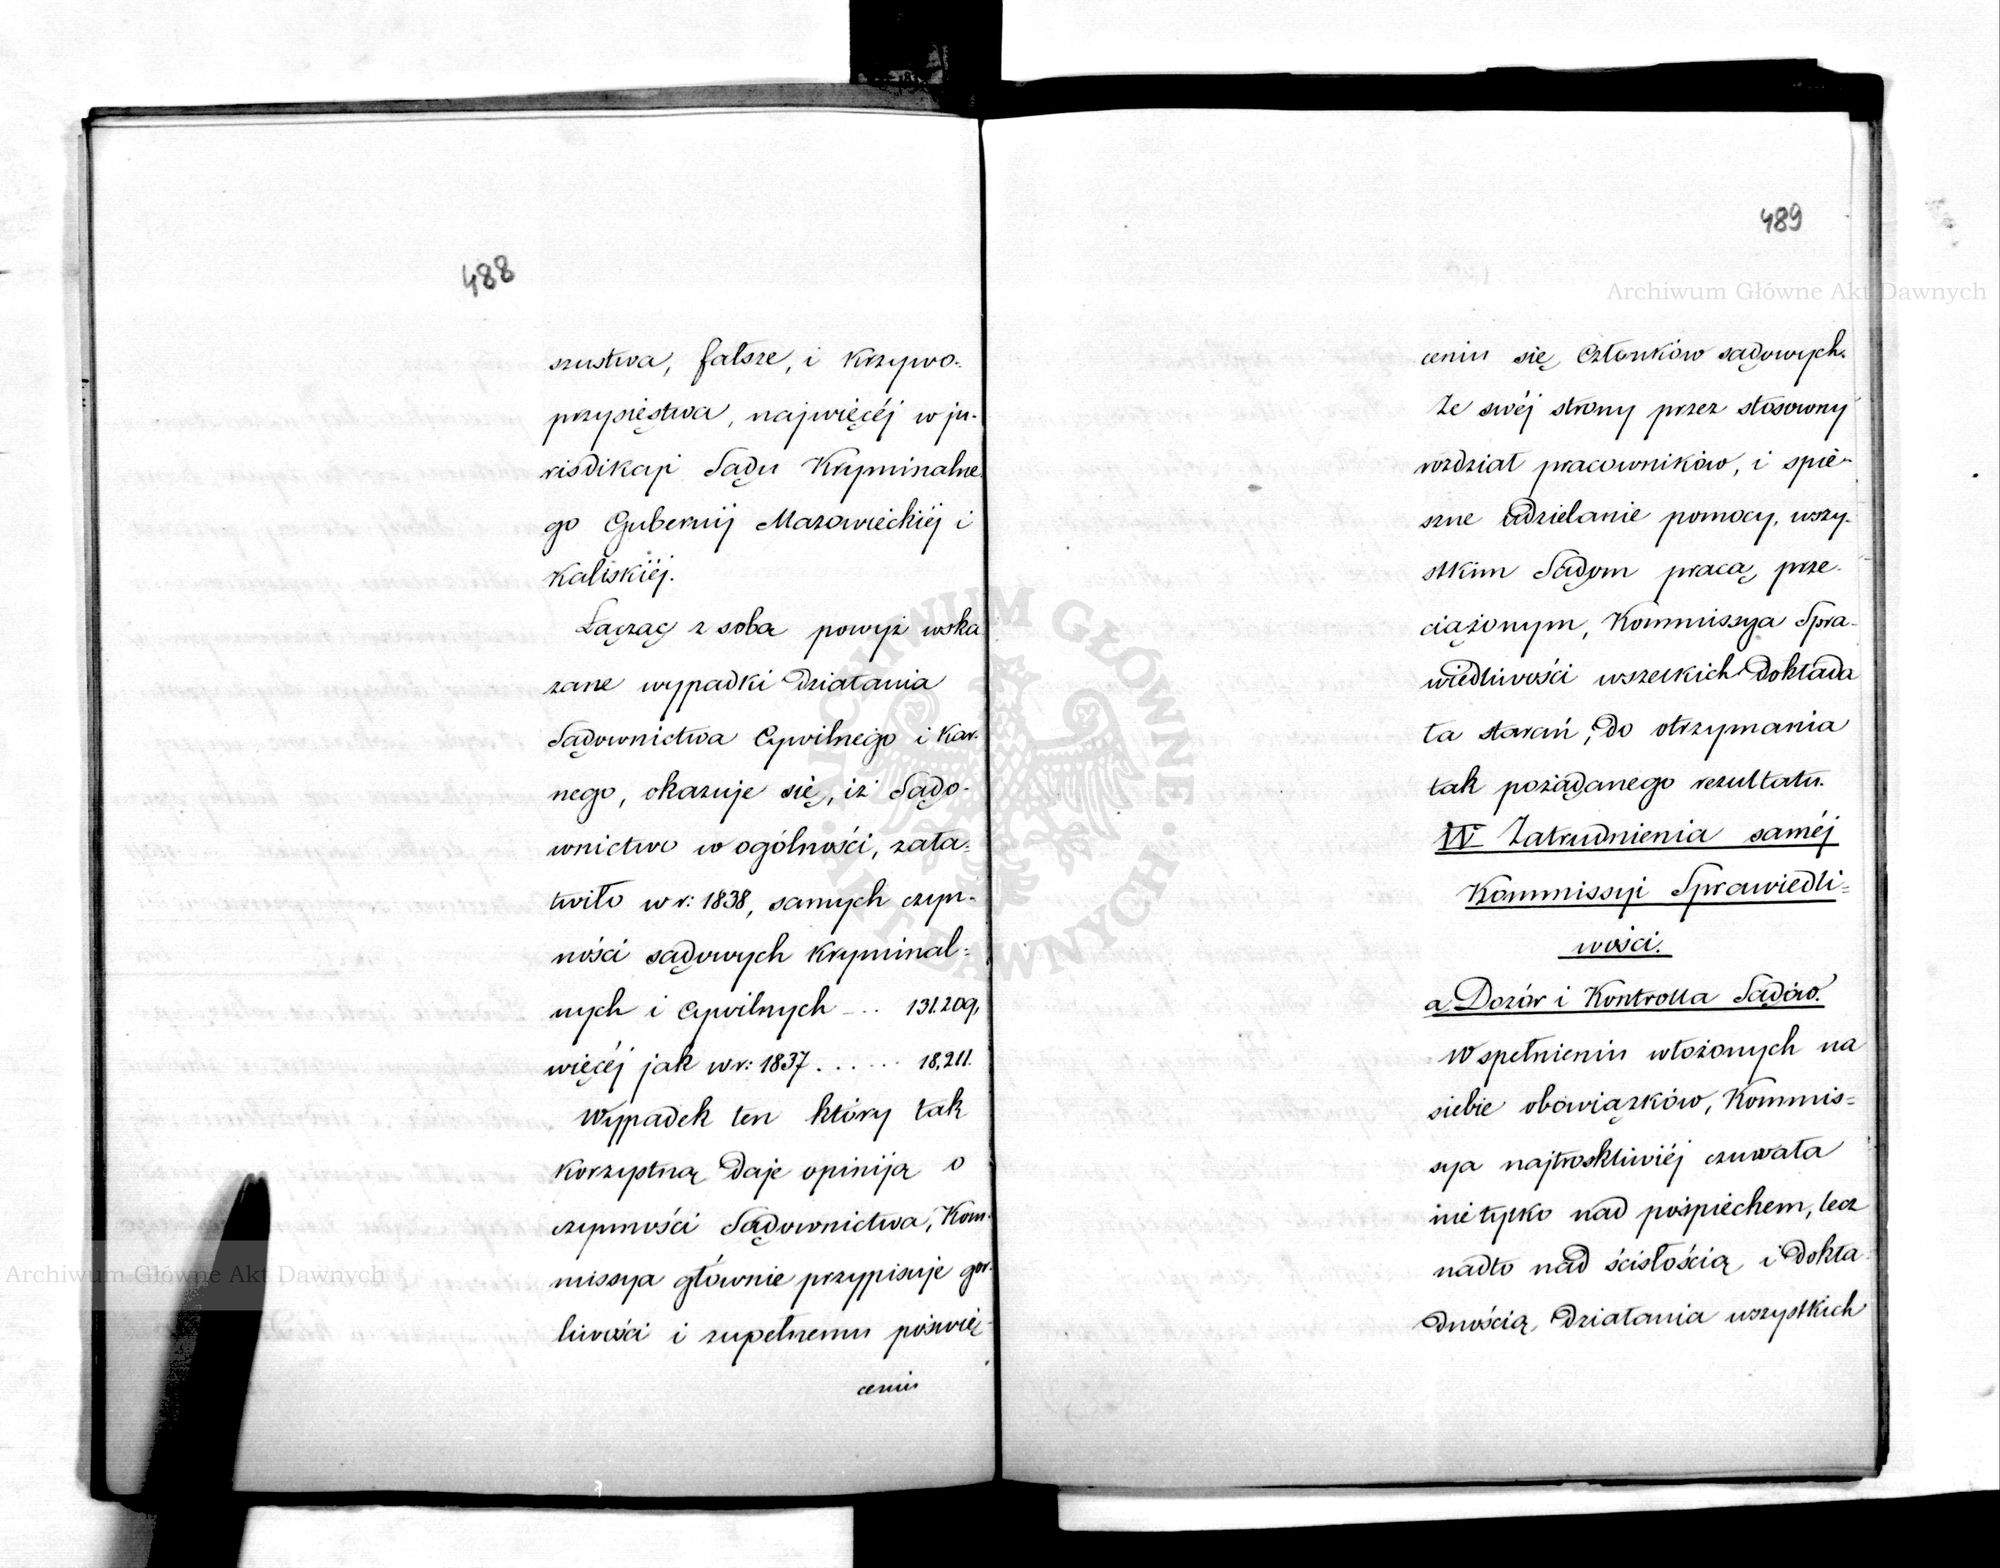 488
szustwa, fałsze, i krzywo-
przysięstwa, najwięcéj w ju-
risdikcyi Sądu Kryminalne
go Gubernij Mazowieckiéj i
Kaliskiéj.
Łącząc z sobą powyż wska
zane wypadki działania
Sądownictwa Cywilnego i kar-
nego, okazuje się, iż Sądo-
wnictwo w ogólności, zała-
twiło w r: 1838, samych czyn-
ności sądowych kryminal=
nych i cywilnych ... 131.209,
więcéj jak w r: 1837 ..... 18,211.
Wypadek ten który tak
korzystną daje opiniją o
czynności Sądownictwa, Kom-
missya głównie przypisuje gor-
liwości i zupełnemu poświę-
ceniu
489
ceniu się Członków sądowych.
Ze swéj strony przez stosowny
rozdział pracowników, i spie-
szne udzielanie pomocy, wszy-
stkim Sądom pracą prze-
ciążonym, Kommissya Spra-
wiedliwości wszelkich dokłada
ła starań, do otrzymania
tak pożądanego rezultatu.
IV Zatrudnienia saméj
Kommissyi Sprawiedli=
wości.
a Dozór i Kontrolla Sądów.
W spełnieniu włożonych na
siebie obowiązków, Kommis=
sya najtroskliwiéj czuwała
nie tylko nad pośpiechem, lecz
nadto nad ścisłością i dokła-
dnością działania wszystkich
Archiwum Główne Akt Dawnych
Archiwum Główne Akt Dawnych
ARCHIWUM GŁÓWNE AKT DAWNYCH